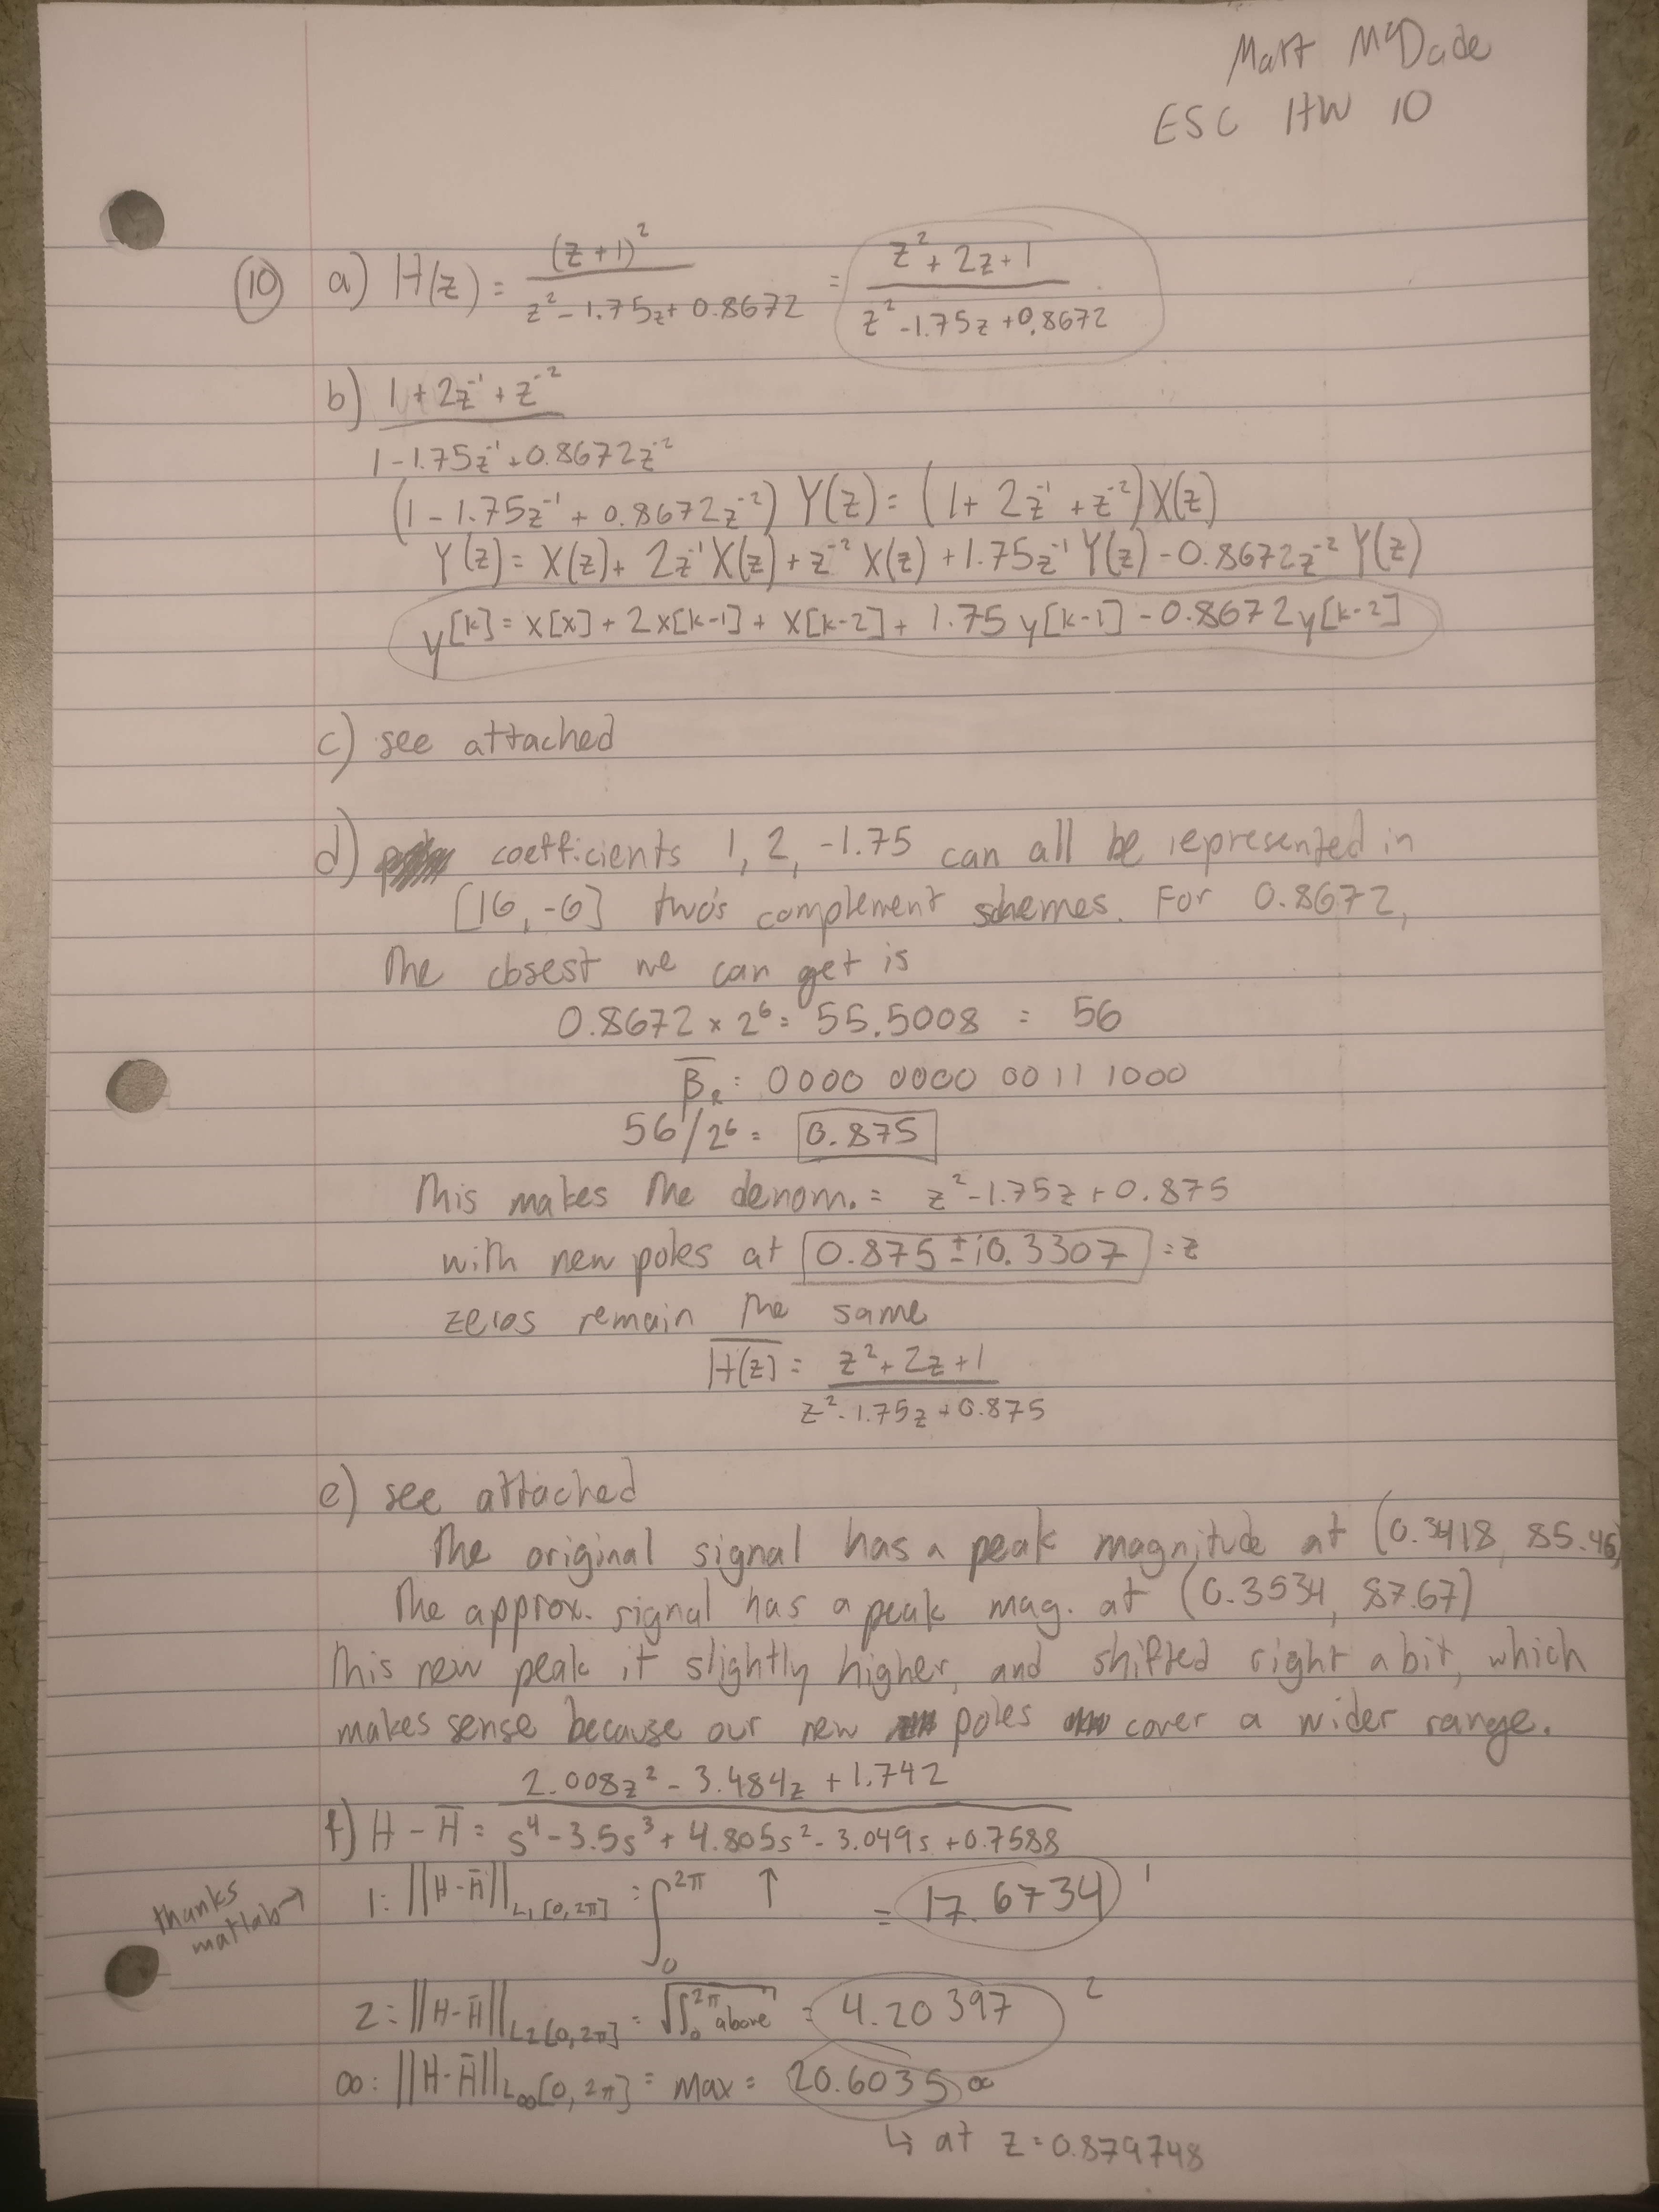 Matt McDade
ESC HW 10
(10) a) H(z) = (z+1)² / (z² - 1.75z + 0.8672) = (z² + 2z + 1) / (z² - 1.75z + 0.8672)
b) (1 + 2z⁻¹ + z⁻²) / (1 - 1.75z⁻¹ + 0.8672z⁻²)
(1 - 1.75z⁻¹ + 0.8672z⁻²) Y(z) = (1 + 2z⁻¹ + z⁻²) X(z)
Y(z) = X(z) + 2z⁻¹X(z) + z⁻² X(z) + 1.75z⁻¹ Y(z) - 0.8672z⁻² Y(z)
y[k] = x[x] + 2x[k-1] + x[k-2] + 1.75 y[k-1] - 0.8672y[k-2]
c) see attached
d) coefficients 1, 2, -1.75 can all be represented in
[16, -6] two's complement schemes. For 0.8672,
the closest we can get is
0.8672 × 2⁶ = 55.5008 = 56
β̅ᵣ = 0000 0000 0011 1000
56/2⁶ = 0.875
This makes the denom. = z² - 1.75z + 0.875
with new poles at 0.875 ± i0.3307 = z
zeros remain the same
H̅(z) = (z² + 2z + 1) / (z² - 1.75z + 0.875)
e) see attached
The original signal has a peak magnitude at (0.3418, 85.46)
The approx. signal has a peak mag. at (0.3534, 87.67)
This new peak it slightly higher, and shifted right a bit, which
makes sense because our new poles cover a wider range.
f) H - H̅ = (2.008z² - 3.484z + 1.742) / (s⁴ - 3.5s³ + 4.805s² - 3.049s + 0.7588)
thanks matlab →
1: ||H-H̅||L₁[0,2π] = ∫₀^2π ↑ = 17.6734 ¹
2: ||H-H̅||L₂[0,2π] = √∫₀^2π above = 4.20397 ²
∞: ||H-H̅||L∞[0,2π] = max = 20.6035 ∞
↳ at z = 0.879748